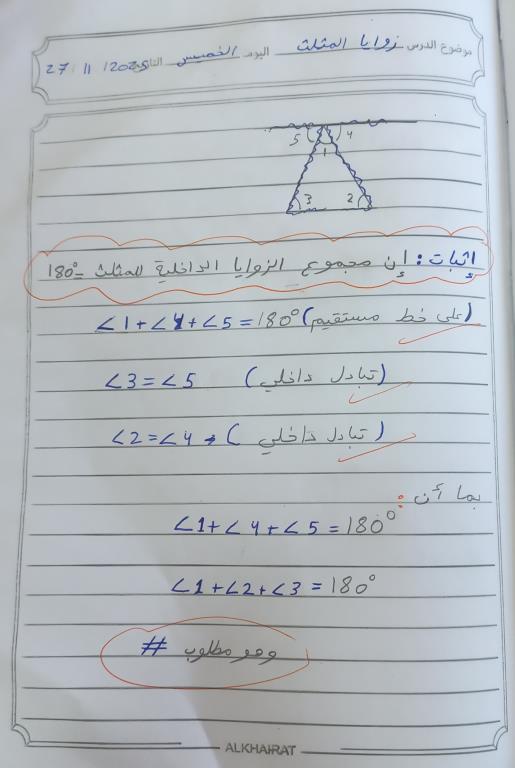 موضوع الدرس زوايا المثلث اليوم الخميس التاريخ 27 11 /2025
5 4
1
3 2
إثبات: إن مجموع الزوايا الداخلية للمثلث = 180°
∠1+∠4+∠5=180° (على خط مستقيم)
∠3=∠5 (تبادل داخلي)
∠2=∠4 → (تبادل داخلي)
بما أن:
∠1+∠4+∠5=180°
∠1+∠2+∠3=180°
وهو مطلوب #
ALKHAIRAT